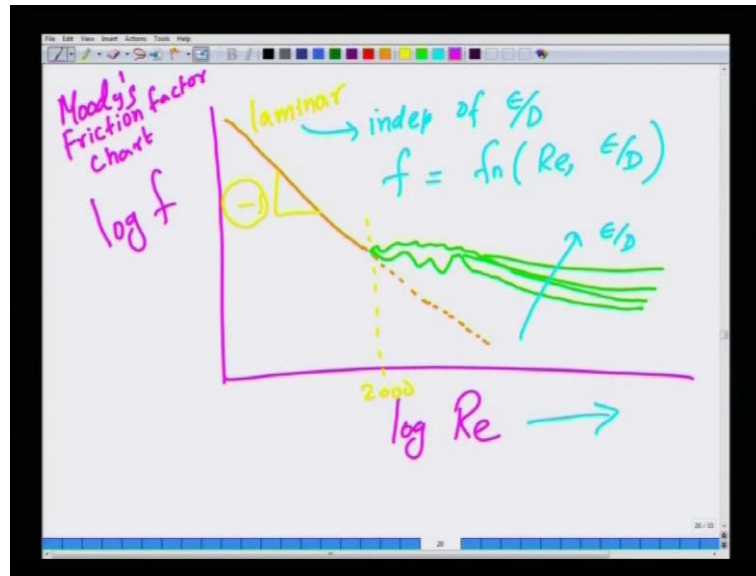 File Edit View Insert Actions Tools Help
Moody's
Friction factor
chart
laminar
indep of ε/D
f = fn(Re, ε/D)
log f
-1
ε/D
2000
log Re
20/33
20